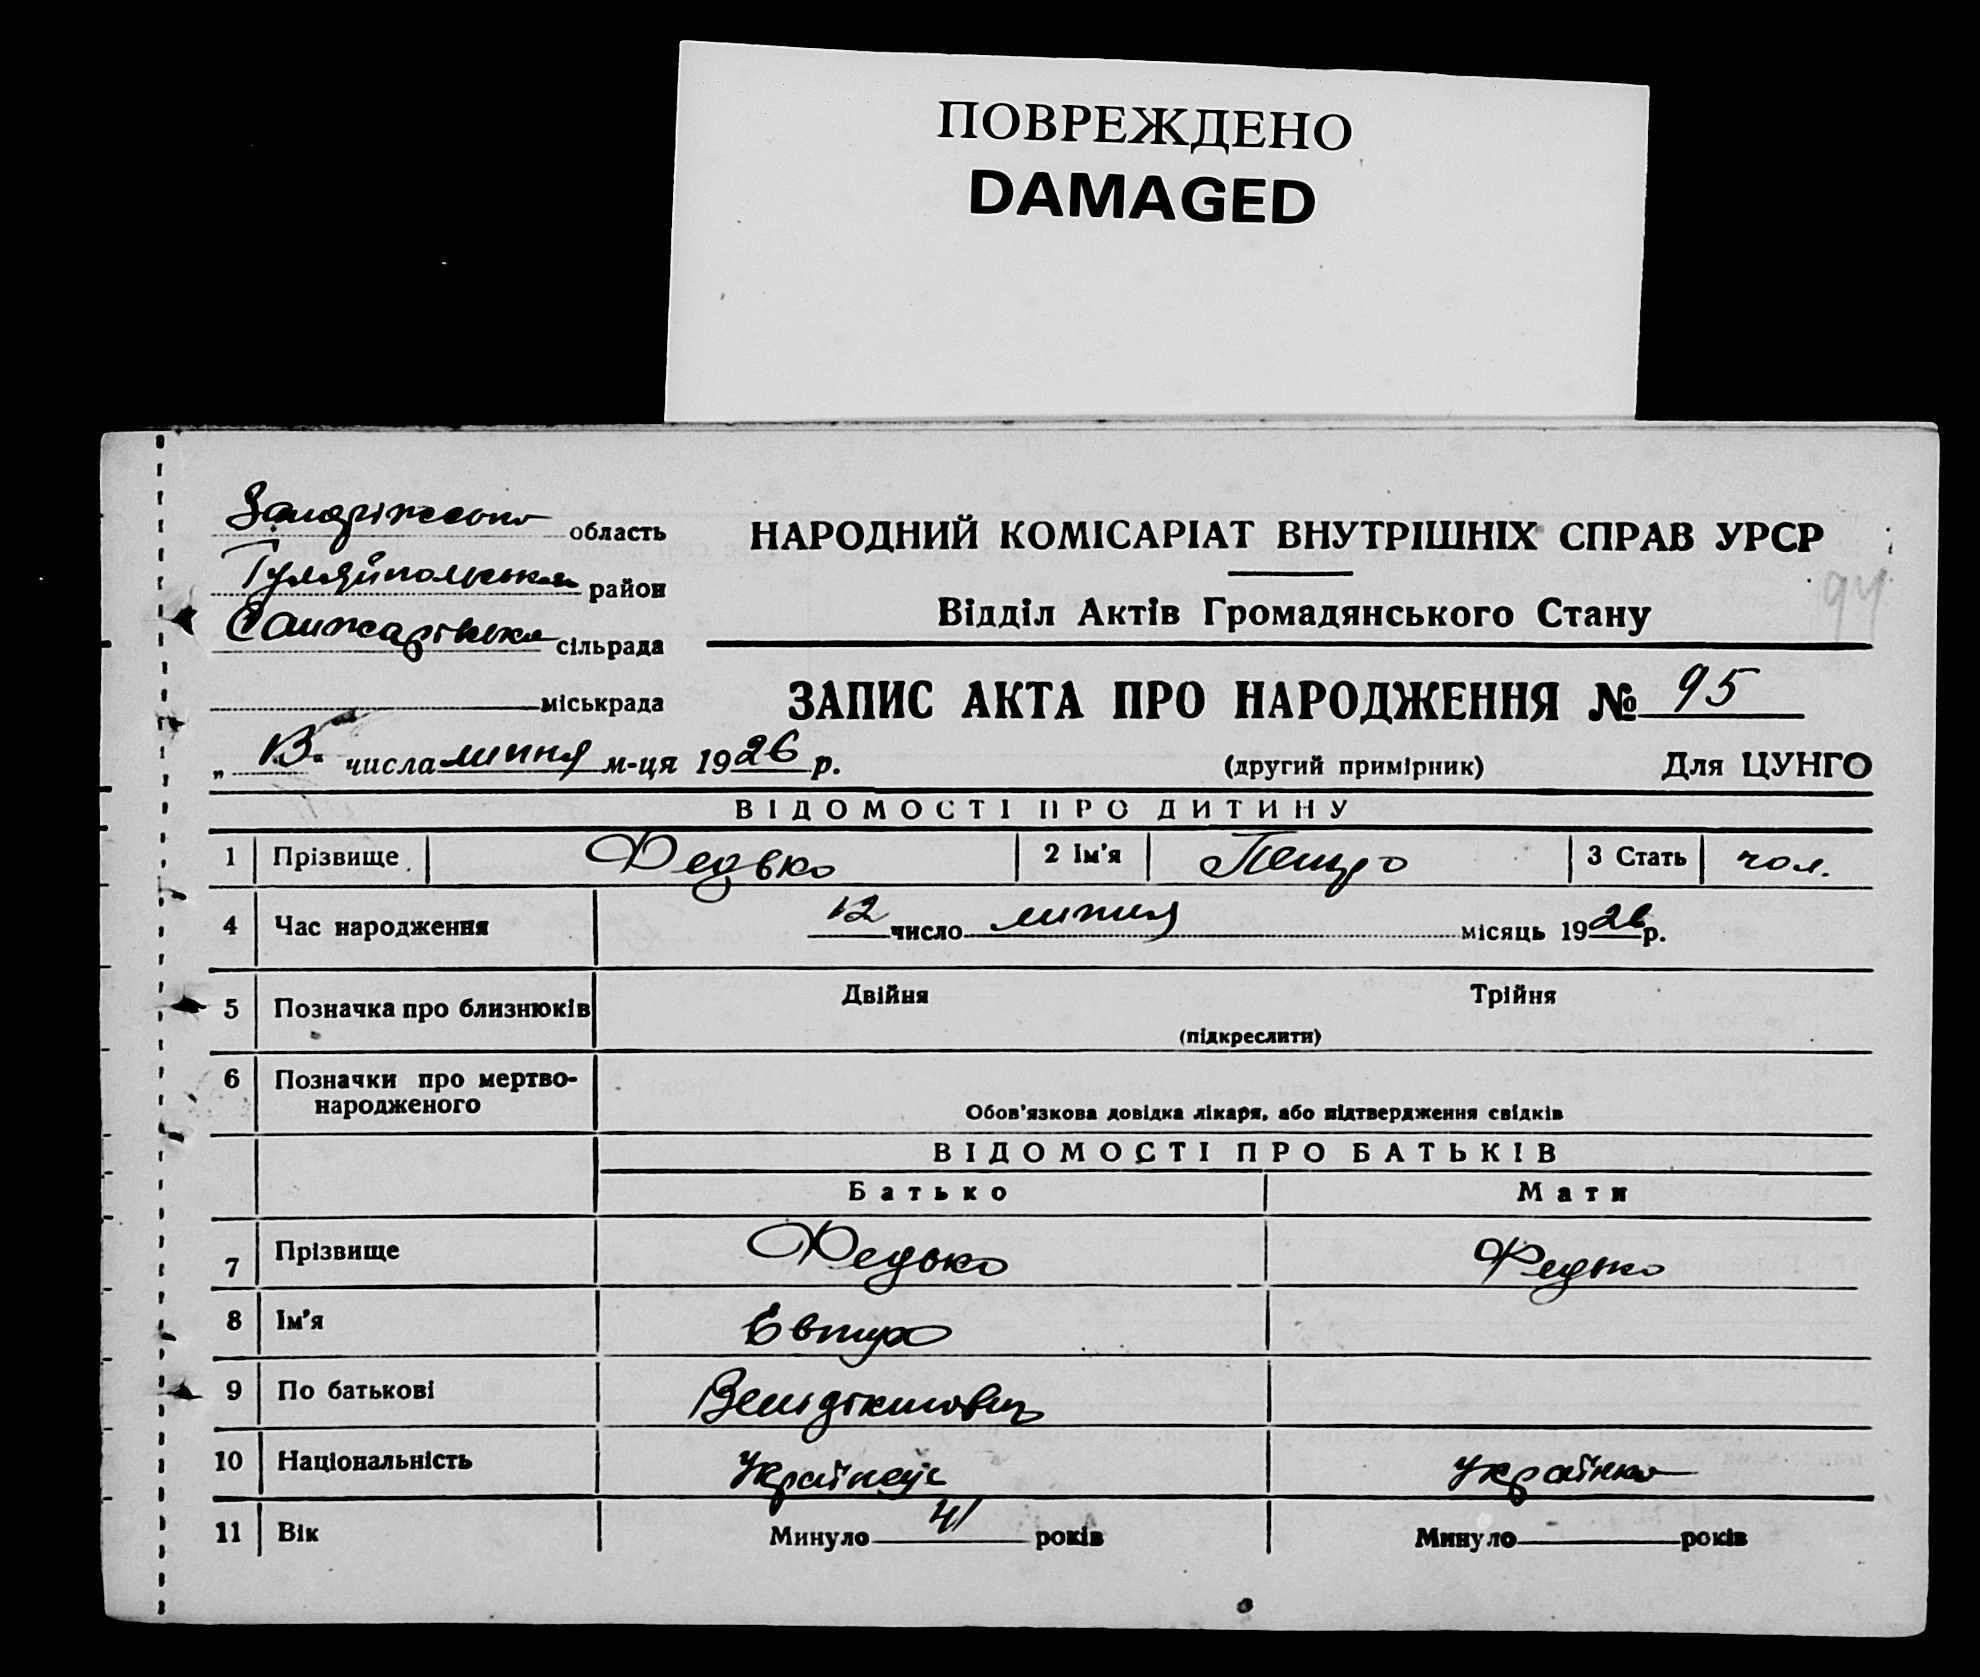 ПОВРЕЖДЕНО
DAMAGED
Запоріжська область
Гуляйпольська район
Санжарівська сільрада
міськрада
НАРОДНИЙ КОМІСАРІАТ ВНУТРІШНІХ СПРАВ УРСР
94
Відділ Актів Громадянського Стану
ЗАПИС АКТА ПРО НАРОДЖЕННЯ № 95
„ 13 “ числа липня м-ця 1926 р.
(другий примірник) Для ЦУНГО
ВІДОМОСТІ ПРО ДИТИНУ
1 Прізвище Федько 2 Ім'я Петро 3 Стать чол.
4 Час народження 12 число липня місяць 1926 р.
5 Позначка про близнюків Двійня Трійня
(підкреслити)
6 Позначки про мертво-
народженого
Обов'язкова довідка лікаря, або підтвердження свідків
ВІДОМОСТІ ПРО БАТЬКІВ
Батько Мати
7 Прізвище Федько Федько
8 Ім'я Евтух
9 По батькові Венідіктович
10 Національність Українець Українка
11 Вік Минуло 41 років Минуло - років